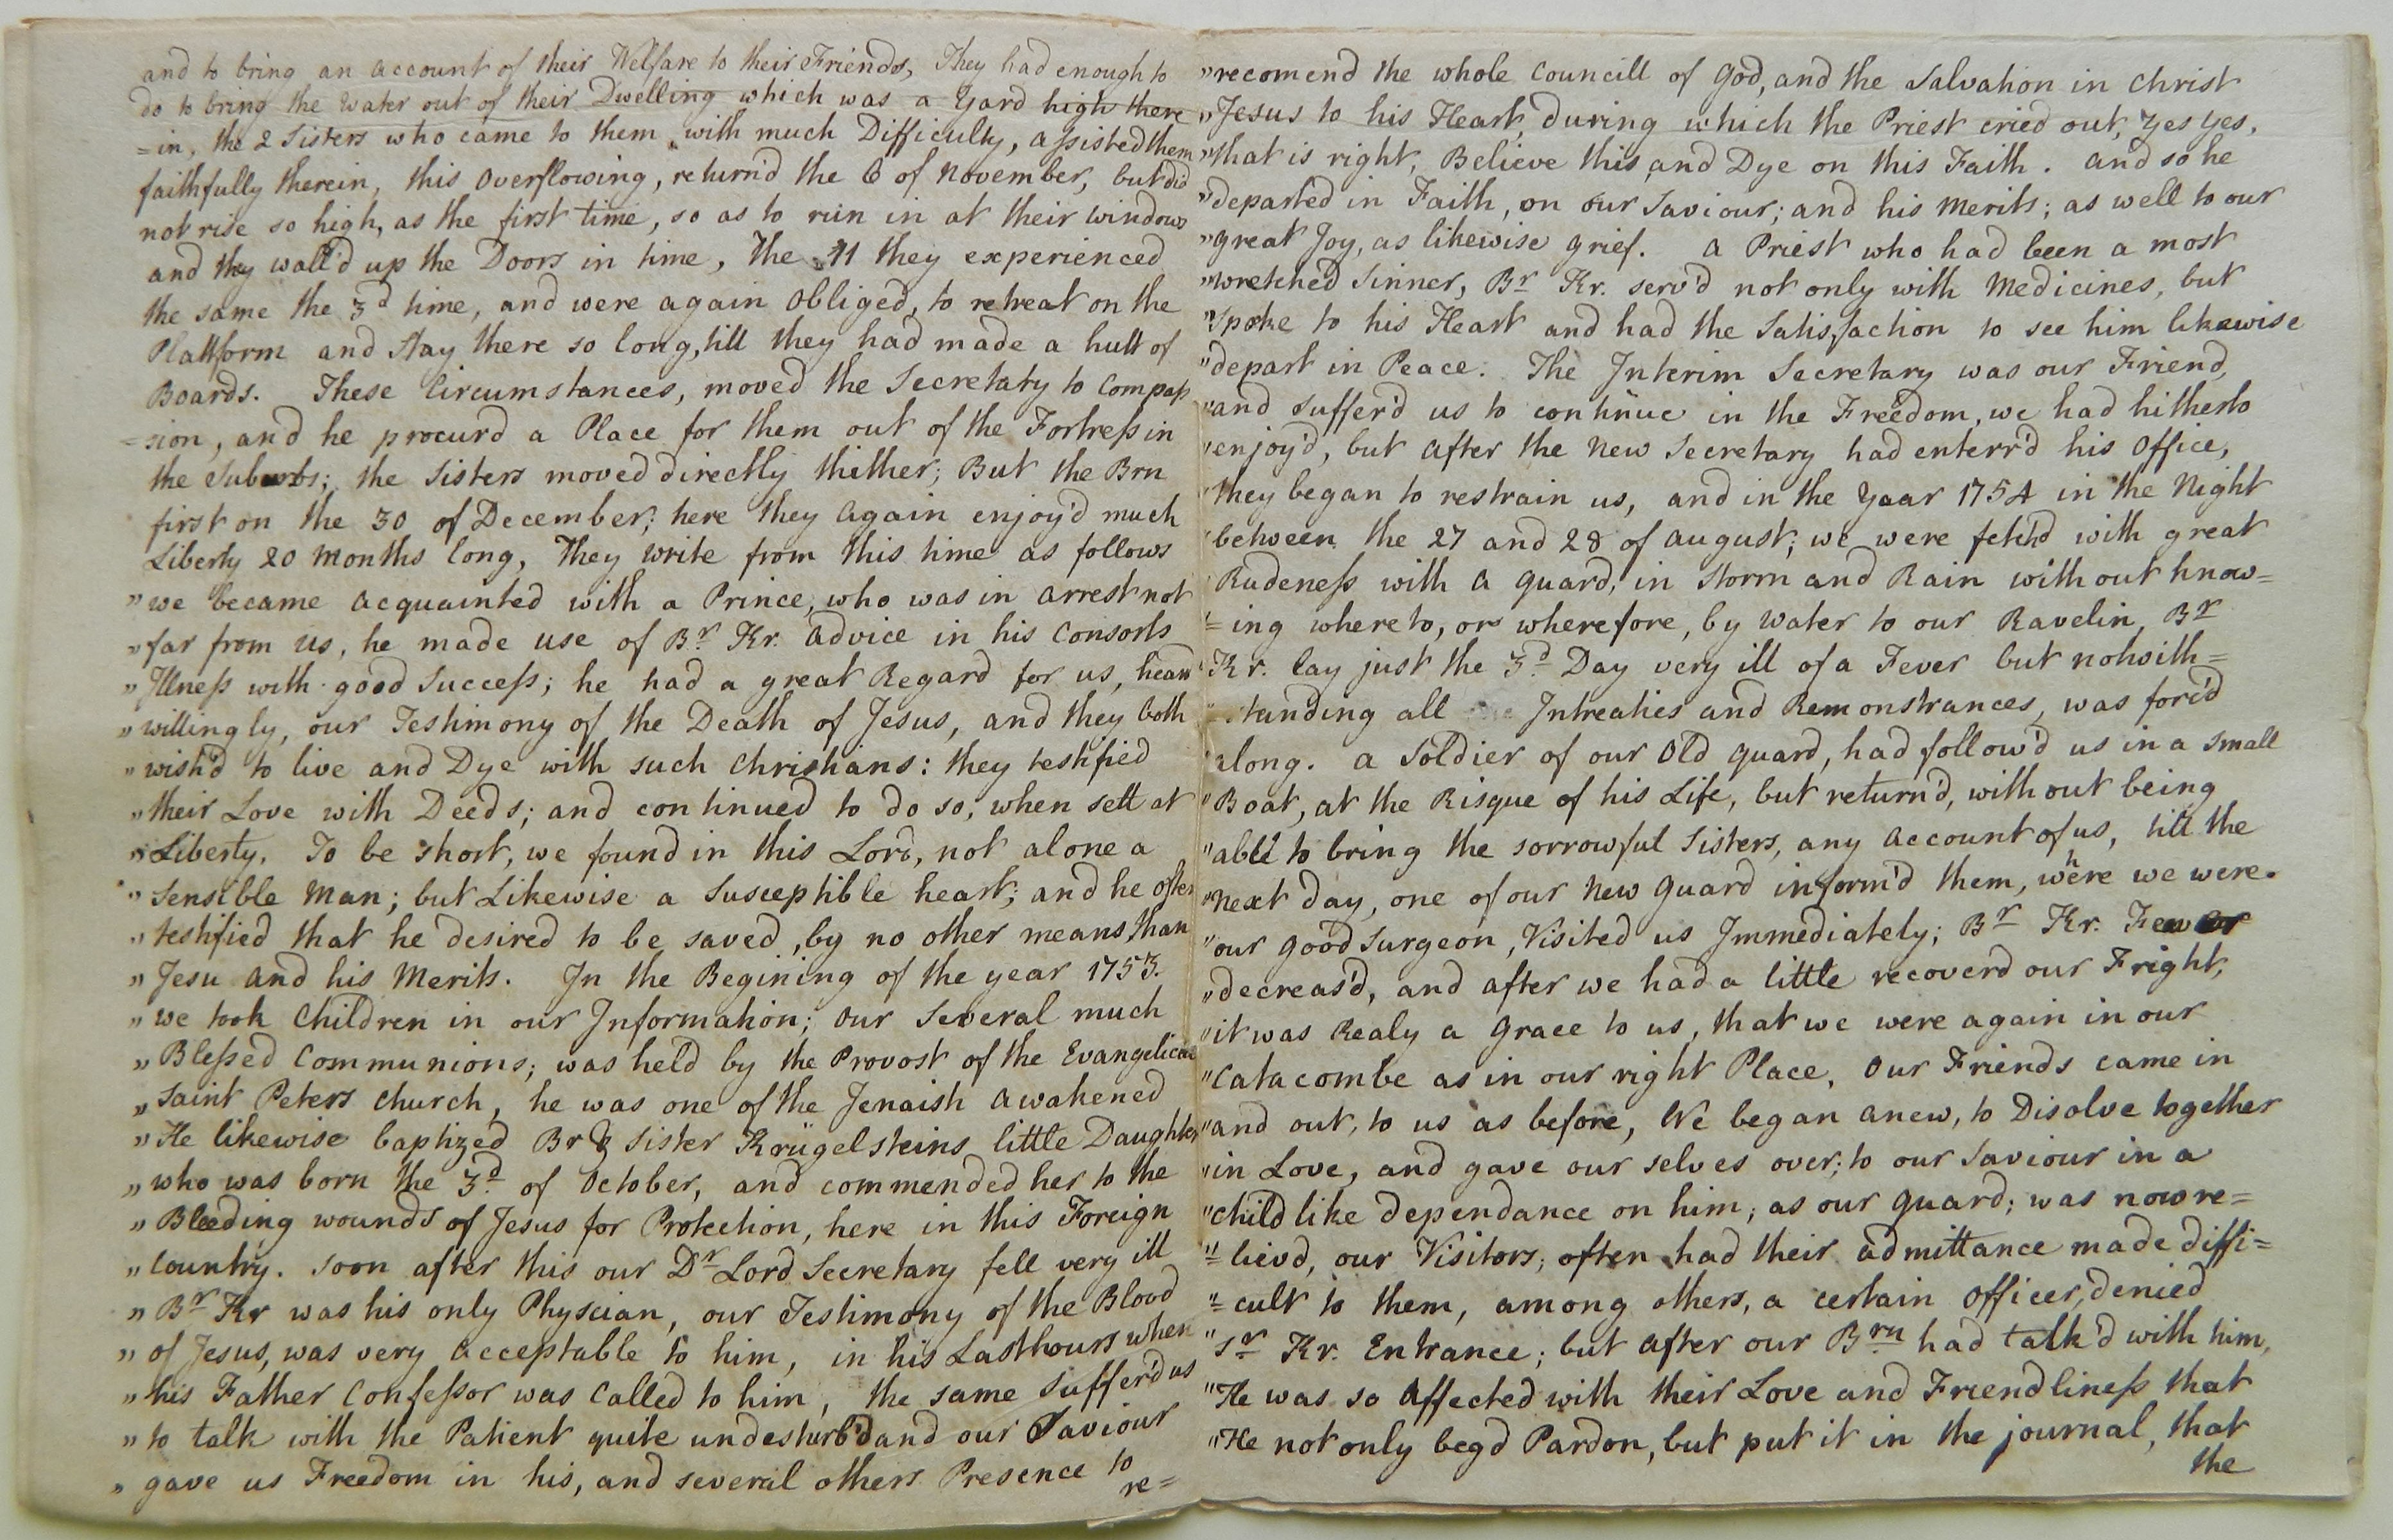 and to bring an account of their Welfare to their Friends, They had enough to
do to bring the water out of their Dwelling which was a Yard high there
=in, the 2 Sisters who came to them, with much Difficulty, assisted them
faithfully therein, this Overflowing, return'd the 6 of November, but did
not rise so high, as the first time, so as to run in at their windows
and they wall'd up the Doors in time, The 11 they experienced
the same the 3d time, and were again Obliged, to retreat on the
Plattform and Stay there so long, till they had made a hutt of
Boards. These Circumstances, moved the Secretary to Compas
=sion, and he procurd a Place for them out of the Fortress in
the Suburbs; the Sisters moved directly thither; But the Brn
first on the 30 of December; here they again enjoy'd much
Liberty 20 Months long, They write from this time as follows
"we became acquainted with a Prince, who was in arrest not
"far from us, he made use of Br. Kr. advice in his Consorts
"Illness with good Success; he had a great Regard for us, heard
"willingly, our Testimony of the Death of Jesus, and they both
"wish'd to live and Dye with such Christians: they testified
"their Love with Deeds; and continued to do so, when sett at
"Liberty. To be short, we found in this Lord, not alone a
"Sensible Man; but Likewise a Susceptible heart; and he often
"testified that he desired to be saved, by no other means than
"Jesu and his Merits. In the Begining of the year 1753.
"we took Children in our Information; Our Several much
"Blessed Communions; was held by the Provost of the Evangelical
"Saint Peters Church, he was one of the Jenaish awakened
"He likewise baptized Br & Sister Krügelsteins little Daughter
"who was born the 3d. of October, and commended her to the
"Bleeding wounds of Jesus for Protection, here in this Foreign
"Country. soon after this our Dr Lord Secretary fell very ill
"Br Kr was his only Physcian, our Testimony of the Blood
"of Jesus, was very acceptable to him, in his Last hours when
"his Father Confessor was Called to him, the same Suffer'd us
"to talk with the Patient quite undesturb'd and our Saviour
"gave us Freedom in his, and several others Presence to
re=
"recomend the whole Councill of God, and the Salvation in Christ
"Jesus to his Heart, during which the Priest cried out, Yes Yes,
"that is right, Believe this and Dye on this Faith. and so he
"departed in Faith, on our Saviour; and his Merits; as well to our
"great Joy, as likewise grief. a Priest who had been a most
"wretched Sinner, Br Kr. serv'd not only with Medicines, but
"Spoke to his Heart and had the Satisfaction to see him likewise
"depart in Peace. The Interim Secretary was our Friend,
"and suffer'd us to continue in the Freedom, we had hitherto
"enjoy'd, but after the New Secretary had enterr'd his Office,
"they began to restrain us, and in the Yaar 1754 in the Night
"between the 27 and 28 of august; we were fetch'd with great
"Rudeness with a guard, in Storm and Rain with out know=
"=ing whereto, or wherefore, by Water to our Ravelin, Br
"Kr. lay just the 3d. Day very ill of a Fever but notwith=
"=standing all Intreaties and Remonstrances, was forc'd
"along. a Soldier of our Old guard, had follow'd us in a Small
"Boat, at the Risque of his Life, but return'd, with out being
"able to bring the sorrowful Sisters, any account of us, till the
"Next day, one of our New guard inform'd them, where we were.
"our good Surgeon, Visited us Immediately; Br Kr. Fever
"decreas'd, and after we had a little recoverd our Fright,
"it was Realy a Grace to us, that we were again in our
"Catacombe as in our right Place, Our Friends came in
"and out, to us as before, We began anew, to Disolve together
"in Love, and gave our selves over; to our Saviour in a
"Child like dependance on him; as our guard; was now re=
"=lievd, our Visitors; often had their admittance made diffi=
"=cult to them, among others, a certain Officer, denied
"Sr Kr. Entrance; but after our Brn had talk'd with him,
"He was so affected with their Love and Friendliness that
"He not only begd Pardon, but put it in the journal, that
the